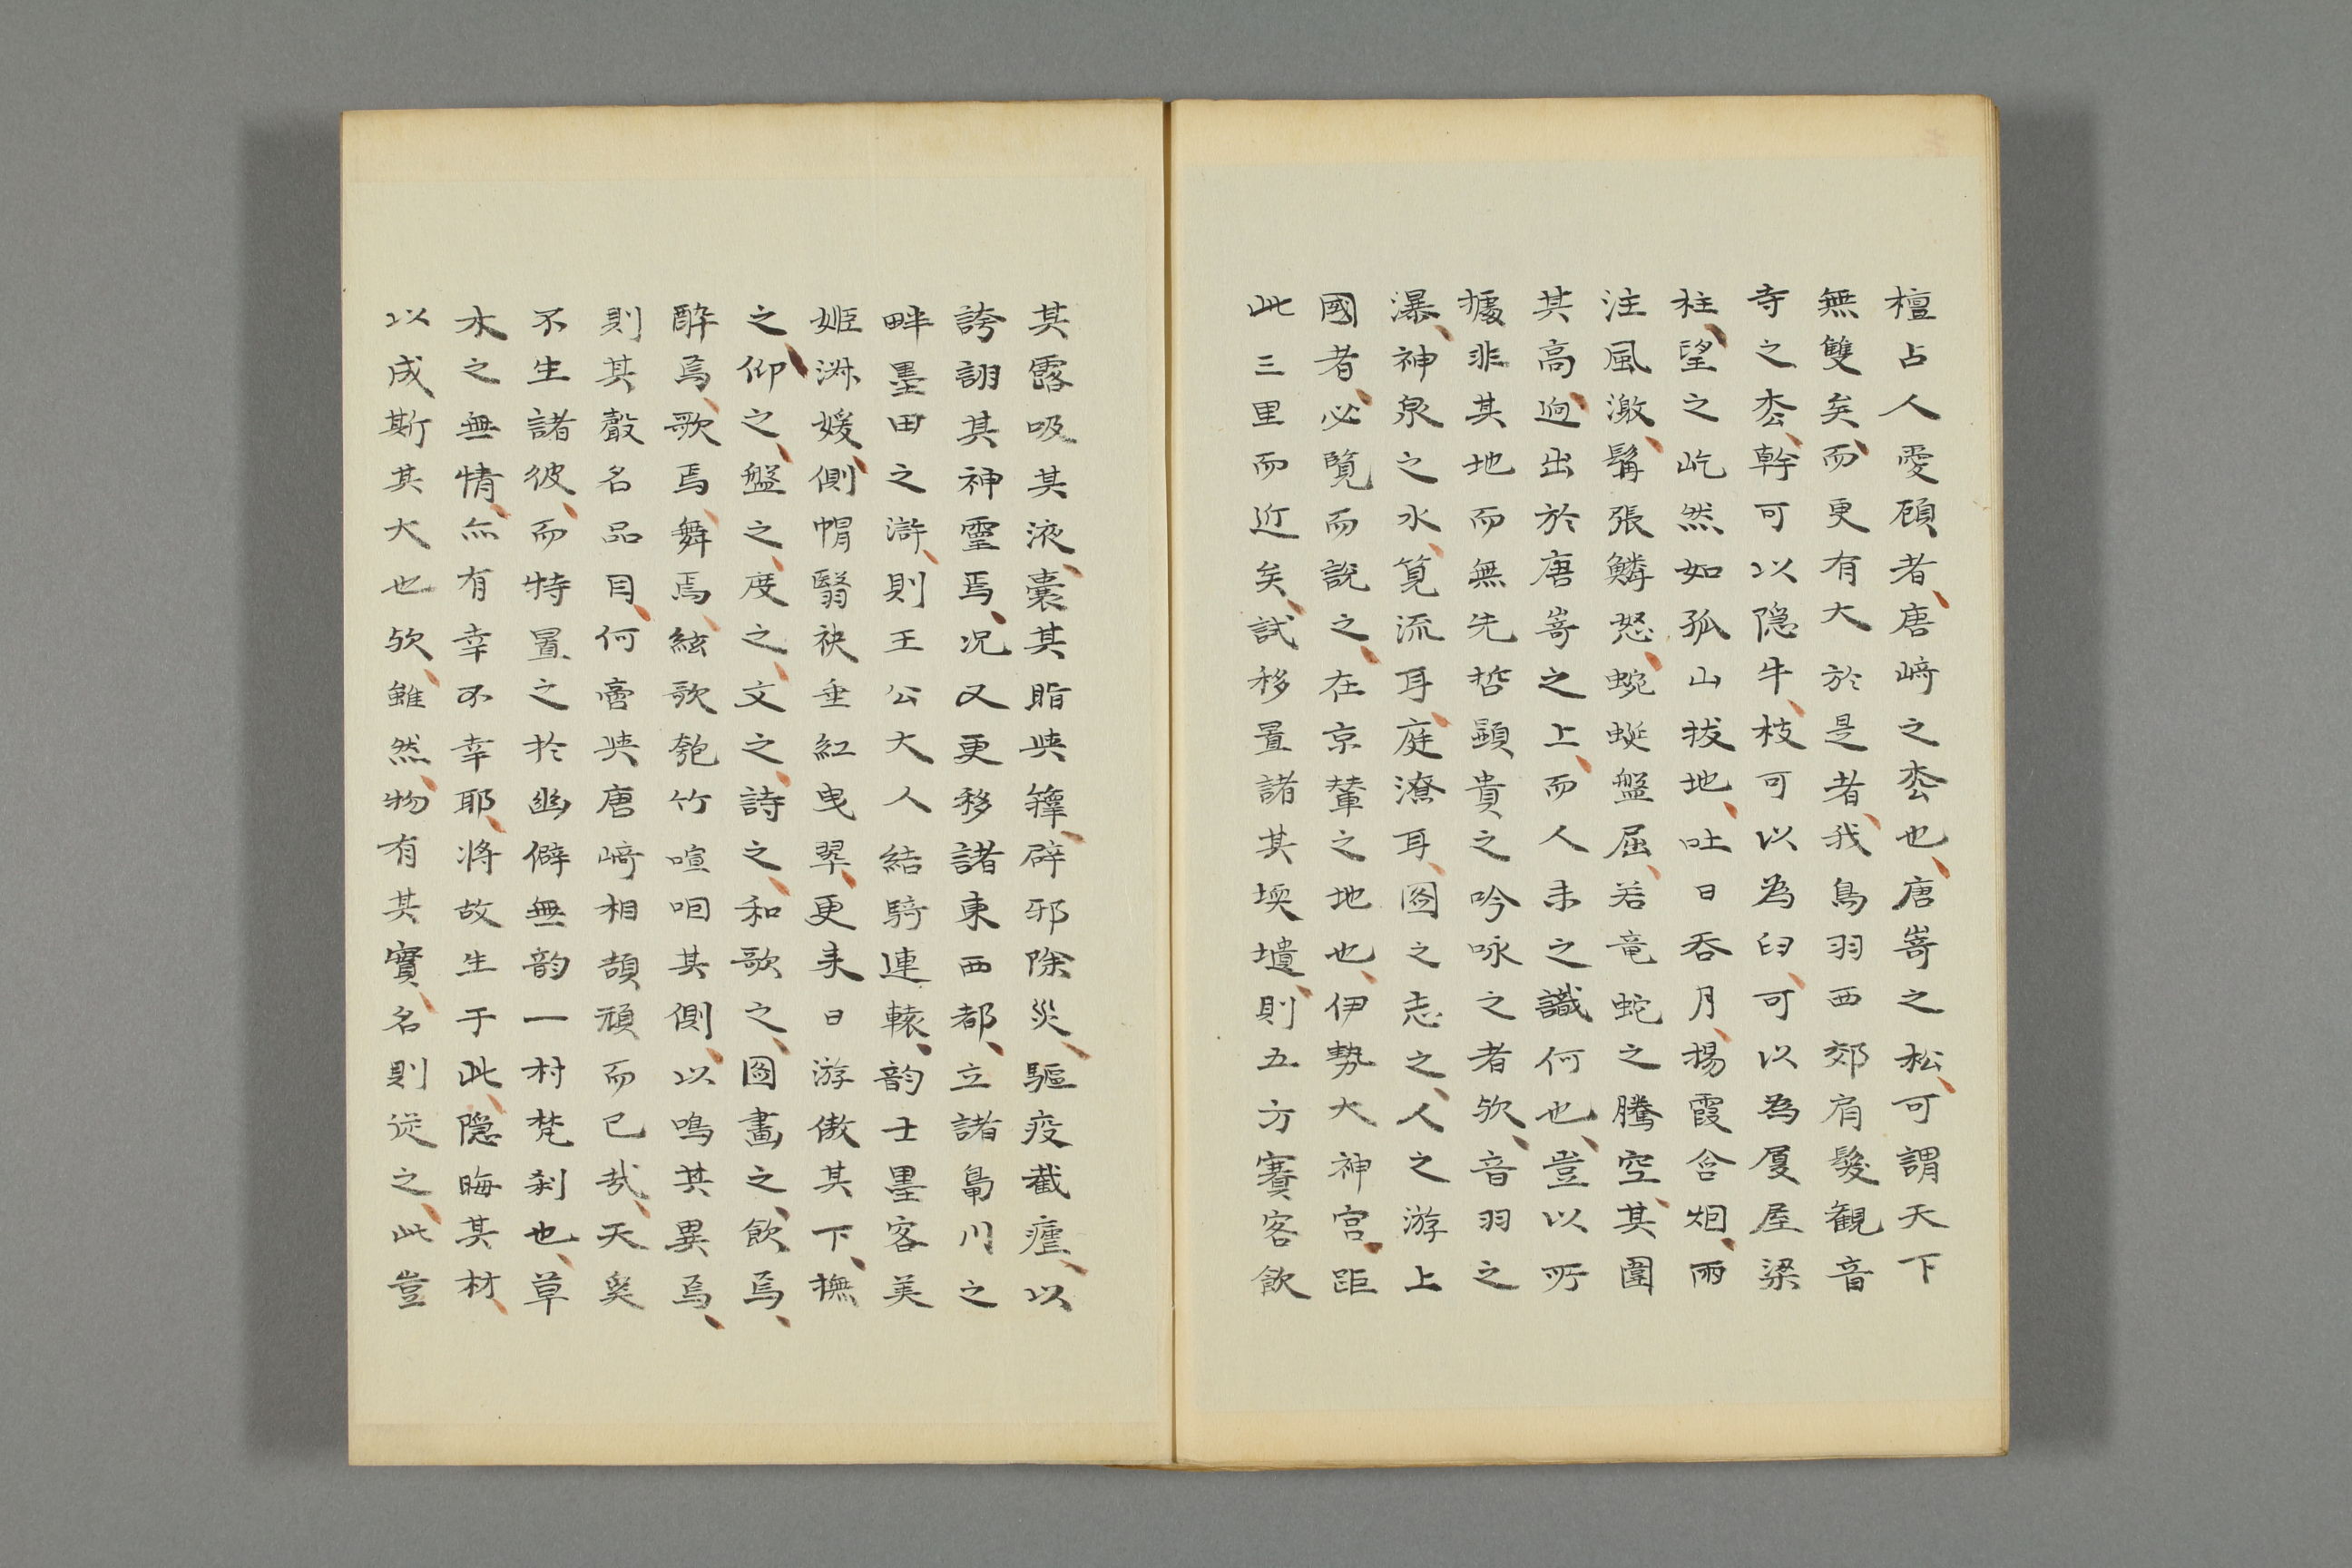 檀占人愛頋者、唐﨑之枩也、唐嵜之松、可謂天下
無雙矣、而更有大於是者、我鳥羽西郊肩髮観音
寺之枩、幹可以隠牛、枝可以為臼、可以為厦屋梁
柱、望之屹然如孤山拔地、吐日呑月、楊霞含烟、雨
注風激、髯張鱗怒、蜿蜒盤屈、若竜蛇之騰空、其圍
其高、逈出於唐嵜之上、而人未之識何也、豈以所
據非其地而無先哲顕貴之吟咏之者欤、音羽之
瀑、神泉之水、筧流耳、庭潦耳、圖之志之、人之游上
國者、必覧而説之、在京輦之地也、伊勢大神宮、距
此三里而近矣、試移置諸其堧壝、則五方賽客飲
其露吸其液、囊其脂㹟籜、辟邪除災、驅疫截瘧、以
誇詡其神靈焉、况又更移諸東西都、立諸鳧川之
畔墨田之滸、則王公大人結騎連轅、韵士墨客美
姬淋媛、側帽翳袂垂紅曳翠、更来日游倣其下、撫
之仰之、盤之、度之、文之、詩之、和歌之、圖畫之、飲焉、
酔焉、歌焉、舞焉、絃歌匏竹喧咽其側、以鳴其異焉、
則其聲名品目、何啻㹟唐﨑相頡頏而已哉、天奚
不生諸彼、而特置之於幽僻無韵一村梵刹也、草
木之無情、亦有幸不幸耶、将故生于此、隠晦其材、
以成斯其大也欤、雖然、物有其實、名則従之、此豈